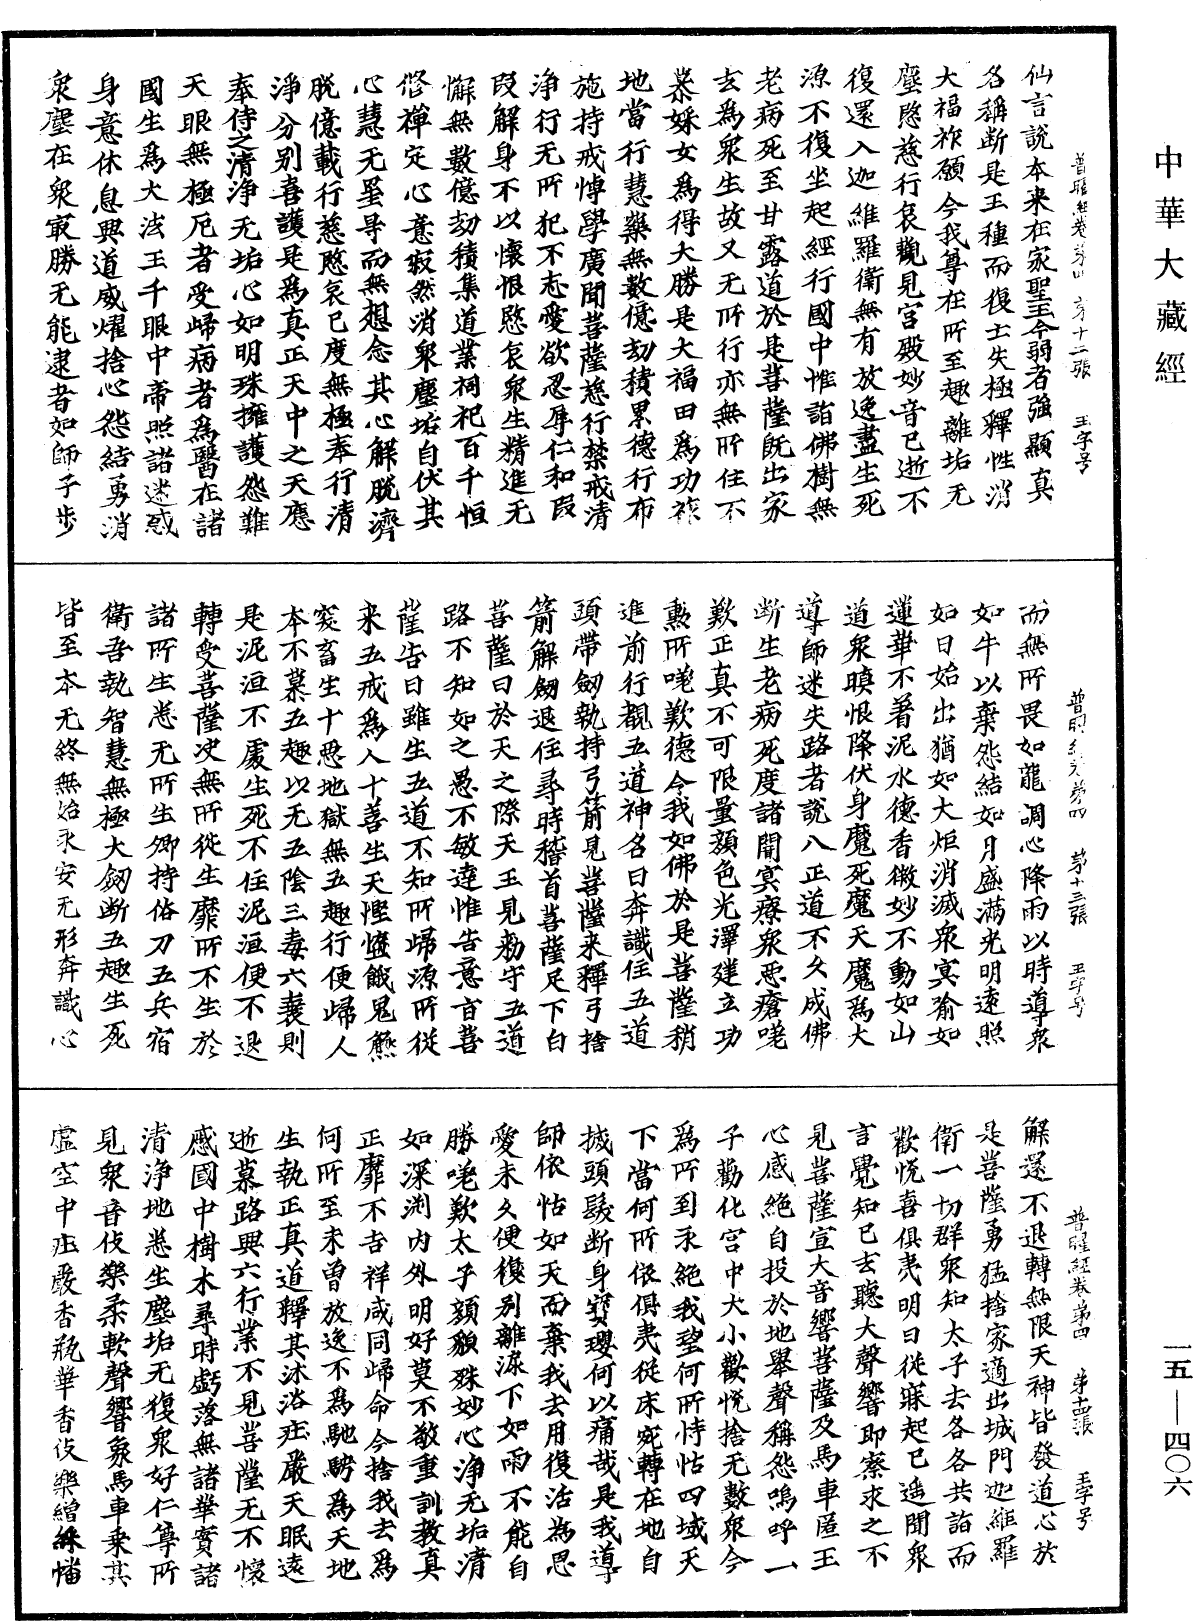 中華大藏經
普曜經卷第四 第十二張 王字号
仙言說本来在家聖至令弱者強顯真
名稱断是王種而復士失極釋性消
大福祚願今我尊在所至趣離垢无
塵愍慈行哀觀見宮殿妙音已逝不
復還入迦維羅衛無有放逸盡生死
源不復坐起經行國中惟詣佛樹無
老病死至甘露道於是菩薩既出家
去為衆生故又无所行亦無所住不
慕婇女為得大勝是大福田為功祚
地當行慧藥無數億劫積累德行布
施持戒博學廣聞菩薩慈行禁戒清
淨行无所犯不志愛欲忍辱仁和叚
叚解身不以懷恨愍哀衆生精進无
懈無數億劫積集道業祠祀百千恒
修禪定心意寂然消衆塵垢自伏其
心慧无罣㝵而無想念其心解脫濟
脫億載行慈愍哀已度無極奉行清
淨分别喜護是為真正天中之天應
奉侍之清淨无垢心如明珠擁護怨難
天眼無極厄者受歸病者為醫在諸
國生為大法王千眼中帝照諸迷惑
身意休息興道威燿捨心怨結勇消
衆塵在衆㝡勝无能逮者如師子步
普曜經卷第四 第十三張 王字号
而無所畏如龍調心降雨以時導衆
如牛以棄怨結如月盛滿光明遠照
如日始出猶如大炬消滅衆冥喻如
蓮華不著泥水德香微妙不動如山
道衆瞋恨降伏身魔死魔天魔為大
導師迷失路者說八正道不久成佛
断生老病死度諸闇冥療衆恶瘡嗟
歎正真不可限量顔色光澤建立功
勲所嗟歎德今我如佛於是菩薩稍
進前行覩五道神名曰奔識住五道
頭帶劒執持弓箭見菩薩来釋弓捨
箭解劒退住尋時稽首菩薩足下白
菩薩曰於天之際天王見勑守五道
路不知如之愚不敏達惟告意旨菩
薩告曰雖生五道不知所歸源所從
来五戒為人十善生天慳墮餓鬼觝
突畜生十恶地獄無五趣行便歸人
本不慕五趣以无五陰三毒六衰則
是泥洹不處生死不住泥洹便不退
轉受菩薩决無所從生靡所不生於
諸所生悉无所生卿持俗刀五兵宿
衛吾執智慧無極大劒断五趣生死
皆至本无終無始永安无形奔識心
普曜經卷第四 第十四張 王字号
解逯不退轉無限天神皆發道心於
是菩薩勇猛捨家適出城門迦維羅
衛一切群衆知太子去各各共詣而
歡悅喜俱夷明日從寐起已遥聞衆
言覺知已去聽大聲響即察求之不
見菩薩宣大音響菩薩及馬車匿王
心感絶自投於地舉聲稱怨嗚呼一
子勸化宮中大小歡悅捨无數衆今
為所到永絶我望何所恃怙四域天
下當何所依俱夷從床宛轉在地自
㧢頭髮断身寶瓔何以痛哉是我導
師依怙如天而棄我去用復活為恩
愛未久便復别離淚下如雨不能自
勝嗟歎太子顔貌殊妙心淨无垢清
如深渕内外明好莫不敬重訓教真
正靡不吉祥咸同歸命今捨我去為
何所至未曾放逸不為馳騁為天地
生執正真道釋其沐浴㽵嚴天眠遠
逝慕路興六行業不見菩薩无不懷
慼國中樹木尋時虧落無諸華實諸
清淨地悉生塵垢无復衆好仁等所
見衆音伎樂柔軟聲響象馬車乗其
虛空中㽵嚴香瓶華香伎樂繒綵幡
一五—四〇六